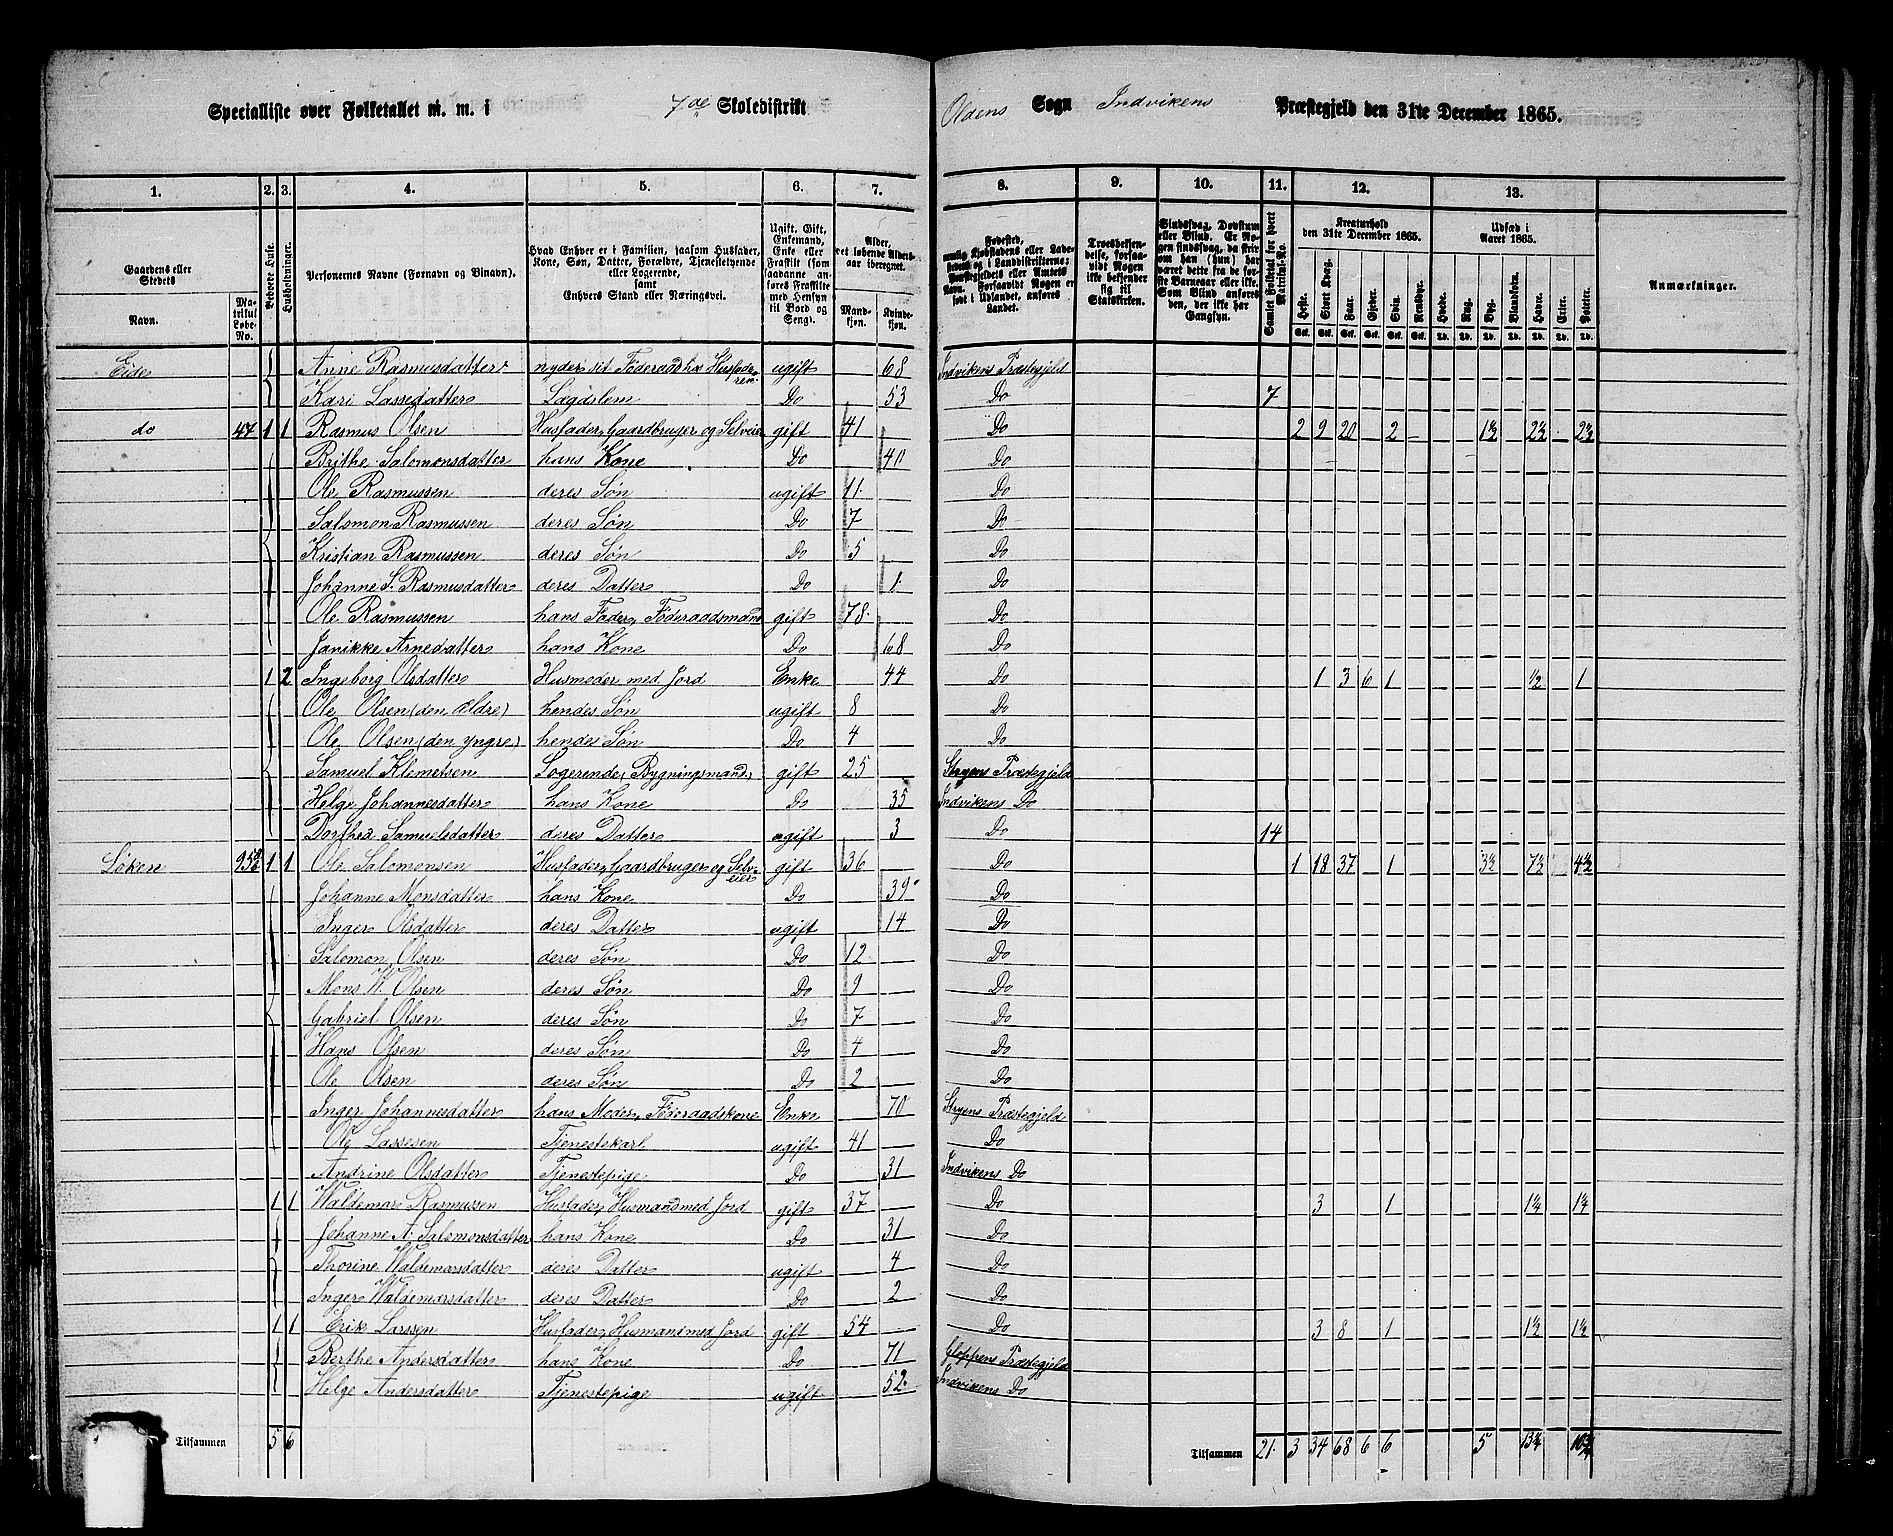 Specialliste over Folketallet m. m. i 7de Skoledistrikt Oldens Sogn Indvikens Præstegjeld den 31te December 1865.
1. 2. 3. 4. 5. 6. 7. 8. 9. 10. 11. 12. 13.
Gaardens eller Stedets Navn. Matrikul Løbe-No. Beboede Huse. Husholdninger. Personernes Navne (Fornavn og Tilnavn). Hvad Enhver er i Familien, saasom Husfader, Kone, Søn, Datter, Forældre, Tjenestetyende eller Logerende, samt Enhvers Stand eller Næringsvei. Mandkjøn. Kvindekjøn. Kreaturhold den 31te December 1865. Udsæd i Aaret 1865. Anmærkninger.
Heste. Stort Kvæg. Faar. Gjeder. Svin. Rensdyr. Hvede. Rug. Byg. Blandkorn. Havre. Erter. Poteter.
Eide Anne Rasmusdatter nyder sit Föderaad hos Husfaderen ugift 68 Indvikens Præstegjeld
Kari Lassedatter Lægdslem Do 53 Do 7
do 47 1 1 Rasmus Olsen Husfader, Gaardbruger og Selveier gift 41 Do 2 9 20 2 1½ 2½ 2½
Brithe Salomonsdatter hans Kone Do 40 Do
Ole Rasmussen deres Søn ugift 11 Do
Salomon Rasmussen deres Søn Do 7 Do
Kristian Rasmussen deres Søn Do 5 Do
Johanne S. Rasmusdatter deres Datter Do 1 Do
Ole Rasmussen hans Fader, Föderaadsmand gift 78 Do
Janikke Arnedatter hans Kone Do 68 Do
1 2 Ingeborg Olsdatter Husmoder med Jord Enke 44 Do 1 3 6 1 ½ 1
Ole Olsen (den Ældre) hendes Søn ugift 8 Do
Ole Olsen (den yngre) hendes Søn Do 4 Do
Samuel Klemetsen Logerende, Bygningsmand gift 25 Stryens Præstegjeld
Helge Johannesdatter hans Kone Do 35 Indvikens Do
Dorthea Samuelsdatter deres Datter ugift 3 Do 14
Löken 1 1 Ole Salomonsen Husfader, Gaardbruger og Selveier gift 36 Do 1 18 37 1 3½ 7½ 4½
Johanne Monsdatter hans Kone Do 39 Do
Inger Olsdatter deres Datter ugift 14 Do
Salomon Olsen deres Søn Do 12 Do
Mons W. Olsen deres Søn Do 9 Do
Gabriel Olsen deres Søn Do 7 Do
Hans Olsen deres Søn Do 4 Do
Ole Olsen deres Søn Do 2 Do
Inger Johannesdatter hans Moder, Föderaadskone Enke 70 Stryens Præstegjeld
Ole Lassesen Tjenestekarl ugift 41 Do
Andrine Olsdatter Tjenestepige Do 31 Indvikens Do
1 1 Waldemar Rasmussen Husfader, Husmand med Jord gift 37 Do 3 1 1¼ 1¼
Johanne A. Salomonsdatter hans Kone Do 31 Do
Thorine Waldemarsdatter deres Datter ugift 4 Do
Inger Waldemarsdatter deres Datter Do 2 Do
1 1 Erik Larssen Husfader, Husmand med Jord gift 54 Do 3 8 1 1½ 1½
Berthe Andersdatter hans Kone Do 71 Gloppens Præstegjeld
Helge Andersdatter Tjenestepige ugift 52 Indvikens Do
Tilsammen 5 6 Tilsammen 21 3 34 68 6 6 5